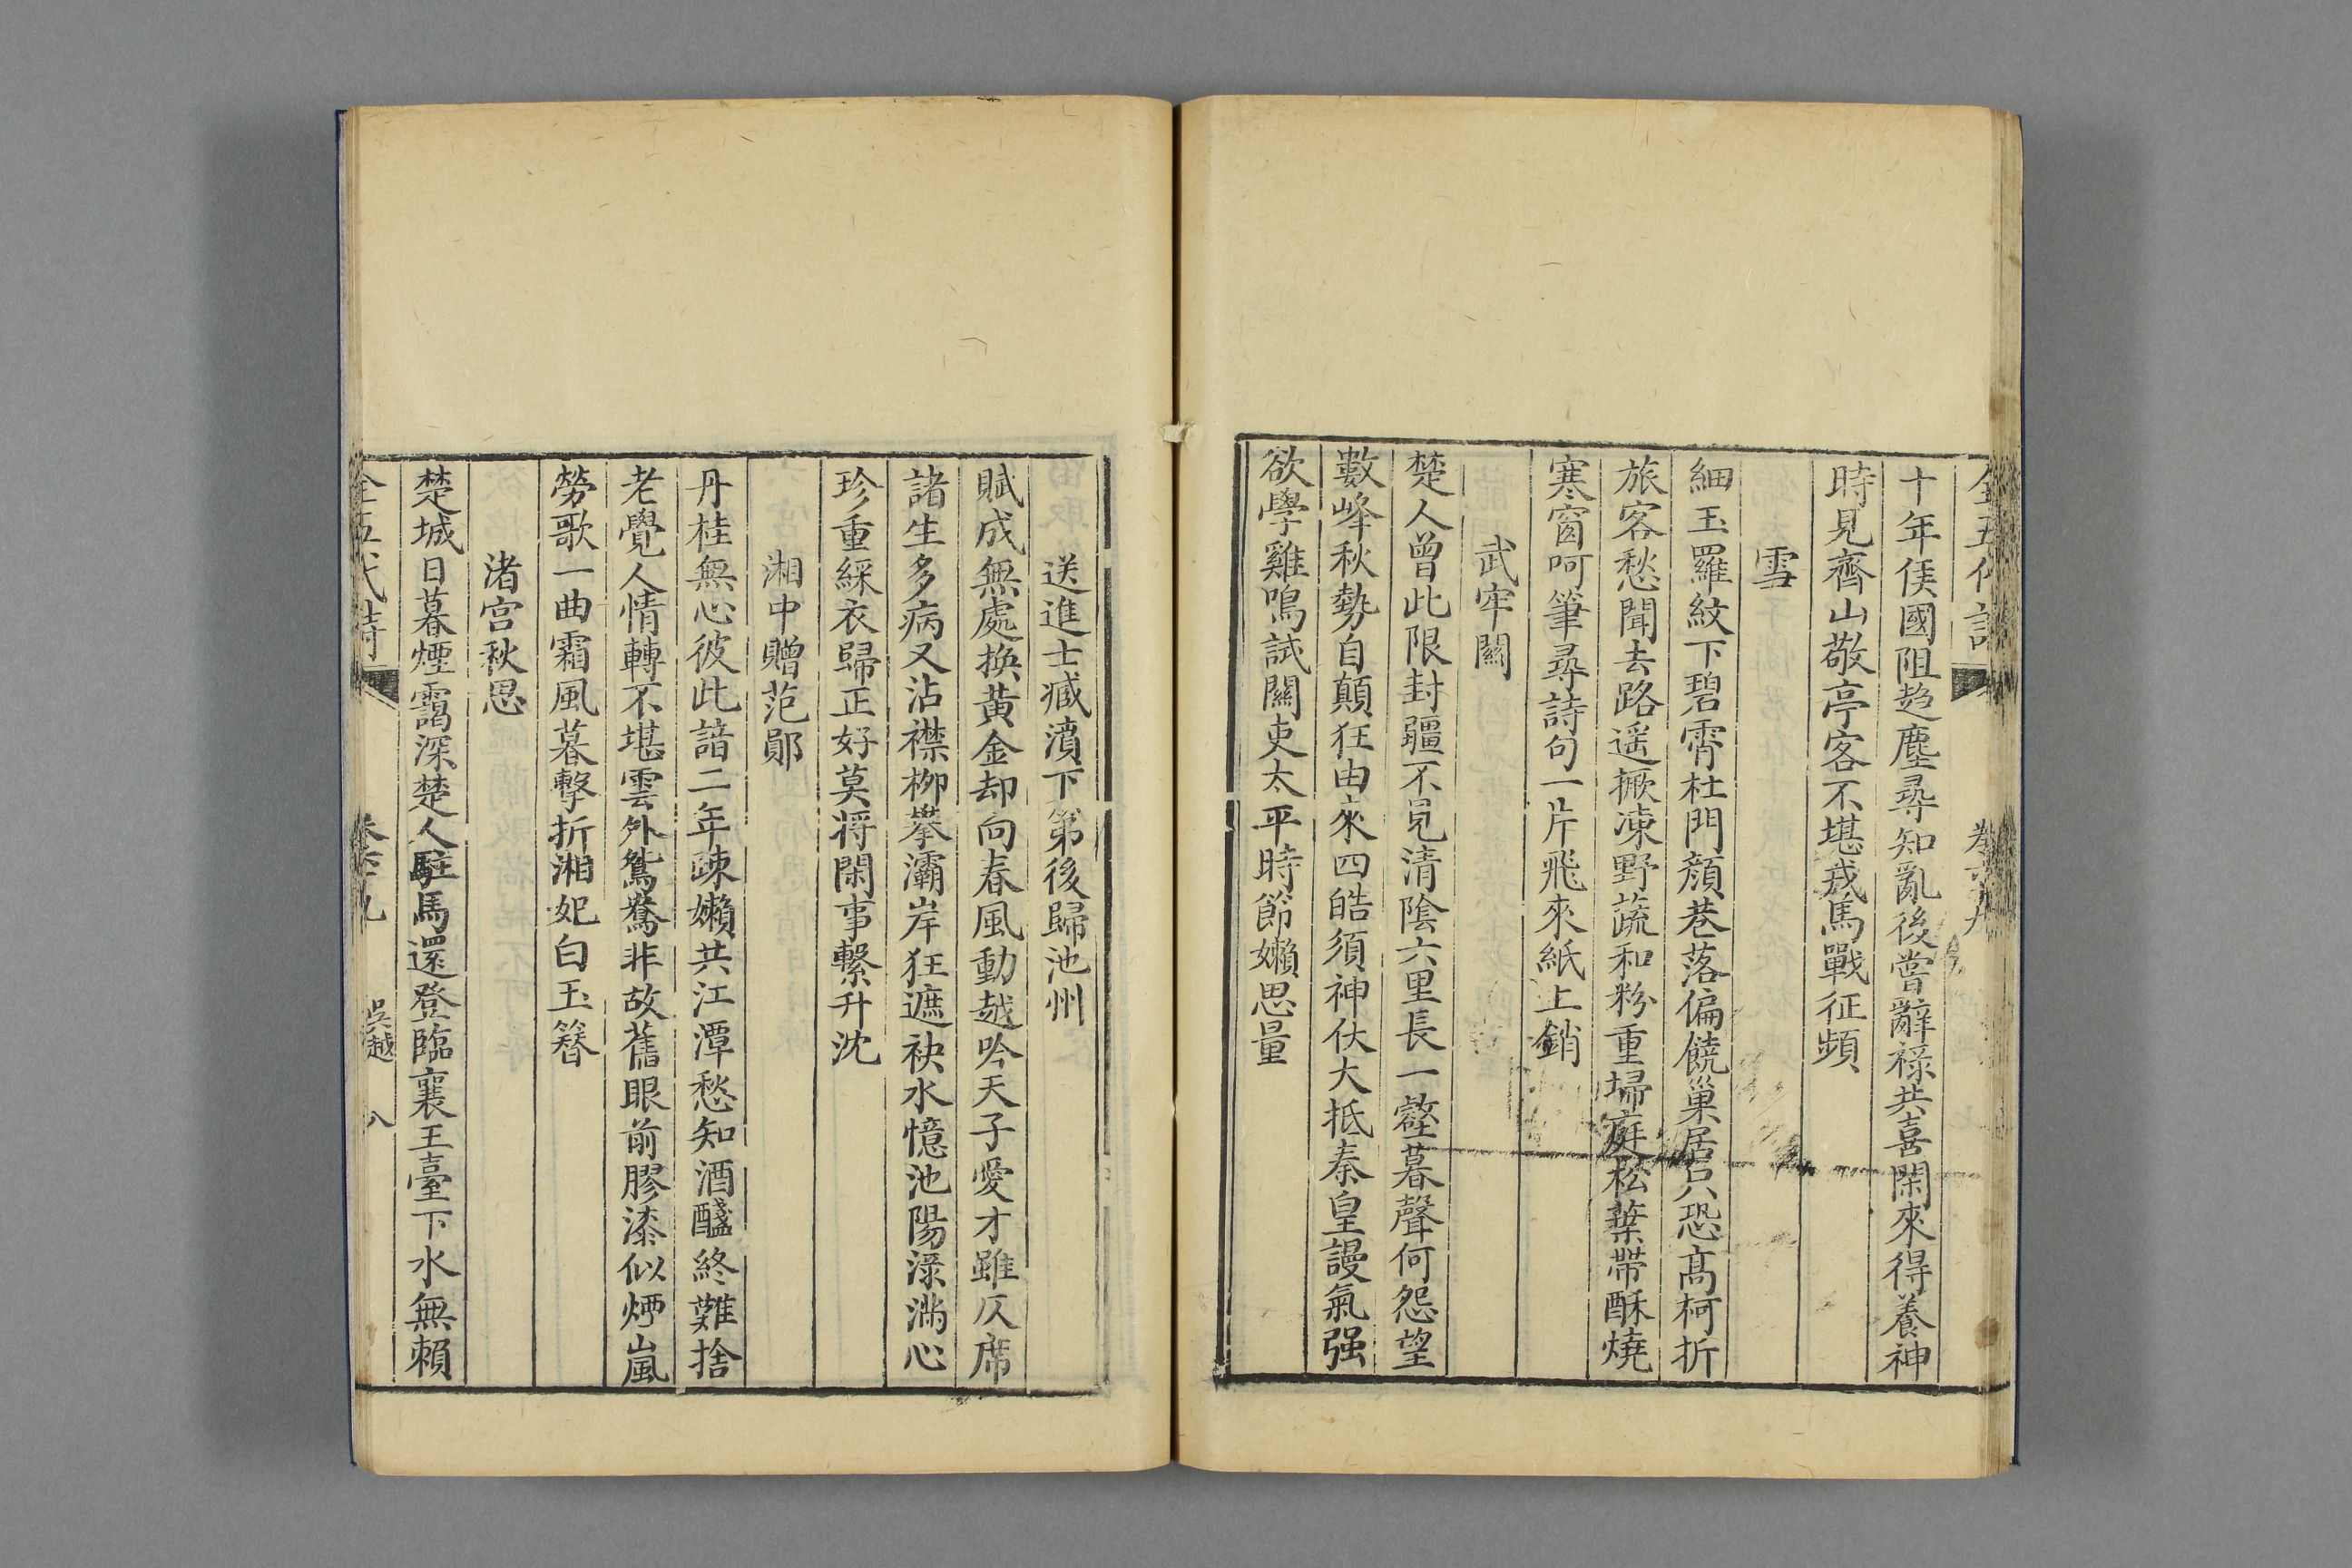 全五代詩
卷六十九
十年侯國阻趋塵尋知亂後嘗辭祿共喜閑來得養神
時見齊山敬亭客不堪戎馬戰征頻
雪
細玉羅紋下碧霄杜門顏巷落偏饒巢居只恐髙柯折
旅客愁聞去路遥撅凍野蔬和粉重埽庭松葉帶酥燒
寒窗呵筆尋詩句一片飛來紙上銷
武牢關
楚人曾此限封疆不見清陰六里長一壑暮聲何怨望
數峰秋勢自顛狂由來四皓須神伏大抵秦皇謾氣强
欲學雞鳴試關吏太平時節嬾思量
送進士臧濆下第後歸池州
賦成無處換黄金却向春風動越吟天子愛才雖仄席
諸生多病又沾襟栁攀灞岸狂遮袂水憶池陽淥滿心
珍重綵衣歸正好莫將閑事繫升沈
湘中贈范鄖
丹桂無心彼此諳二年疎嬾共江潭愁知酒醆終難捨
老覺人情轉不堪雲外鴛鴦非故舊眼前膠漆似煙嵐
勞歌一曲霜風暮擊折湘妃白玉簪
渚宫秋思
楚城日暮煙靄深楚人駐馬還登臨襄王臺下水無賴
全五代詩
卷六十九
吳越
八